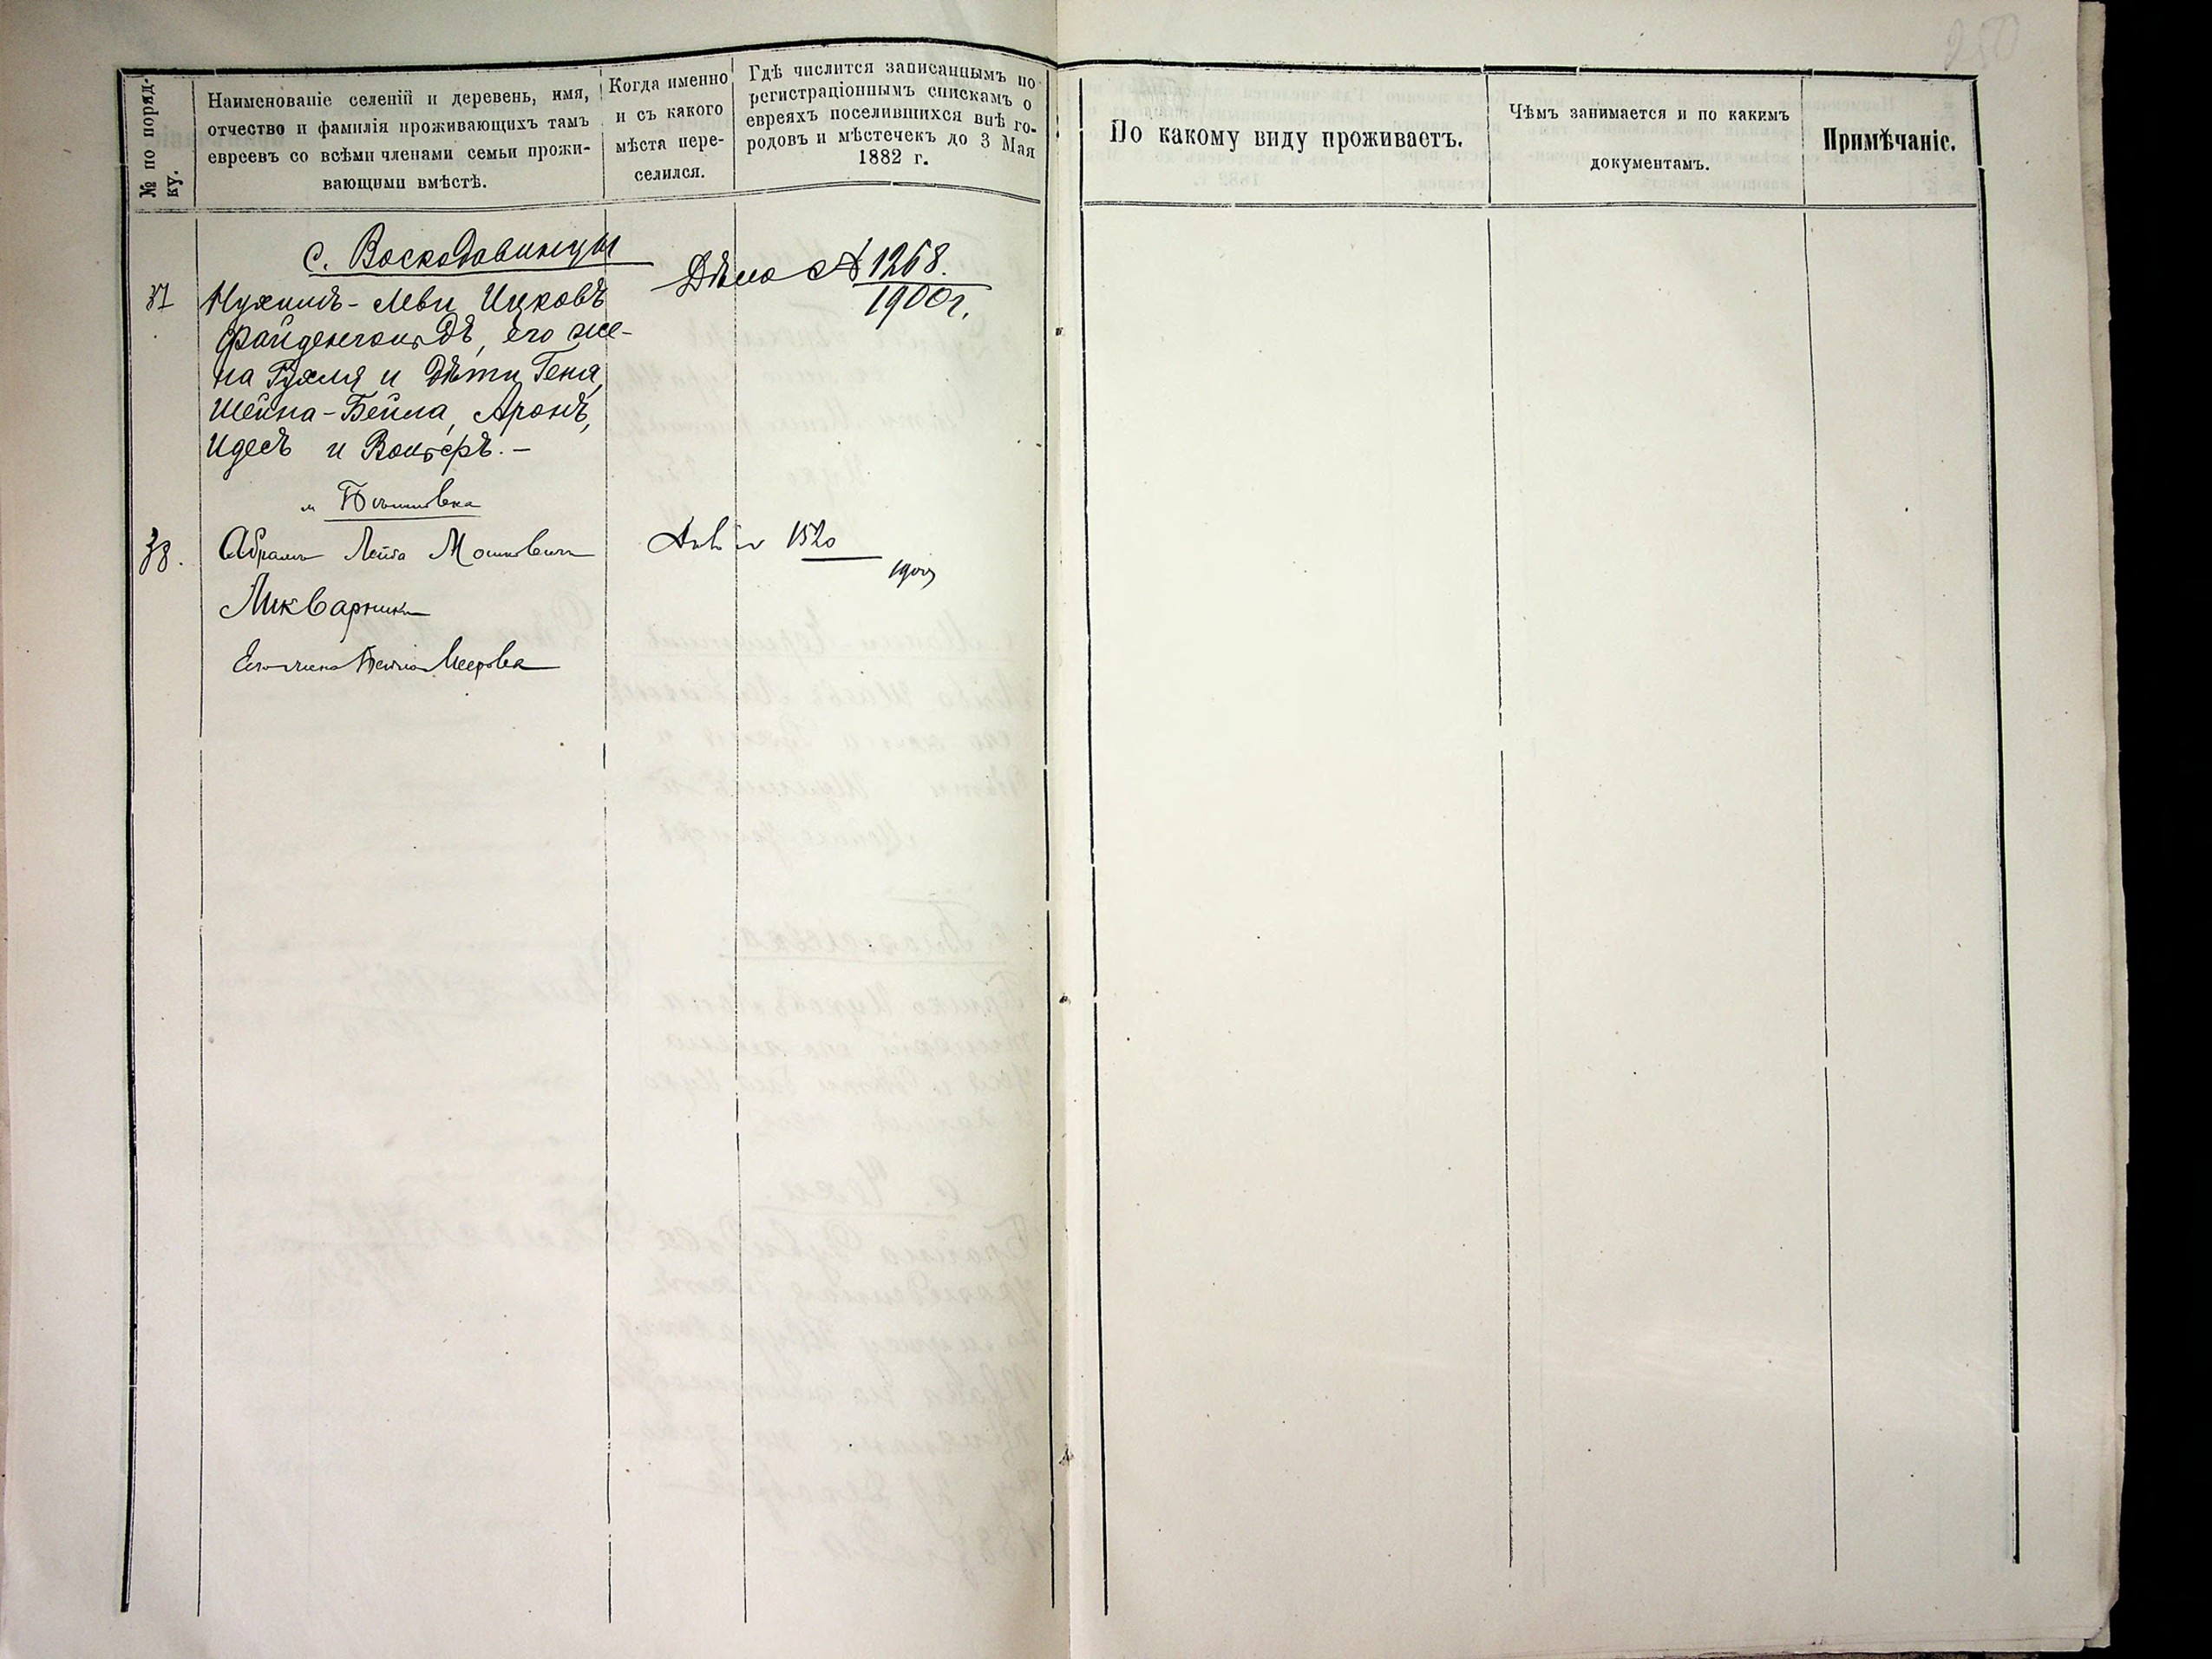 250
№ по поряд-
ку.
Наименованіе селеній и деревень, имя,
отчество и фамилія проживающихъ тамъ
евреевъ со всѣми членами семьи прожи-
вающими вмѣстѣ.
Когда именно
и съ какого
мѣста пере-
селился.
Гдѣ числится записаннымъ по
регистраціоннымъ спискамъ о
евреяхъ поселившихся внѣ го-
родовъ и мѣстечекъ до 3 Мая
1882 г.
По какому виду проживаетъ.
Чѣмъ занимается и по какимъ
документамъ.
Примѣчаніе.
с. Воскодавинцы
37
Нухимъ-Леви Ицковъ
Файденгольдъ, его же-
на Рухля и дѣти Геня,
Шейна-Бейла, Аронъ,
Идесъ и Вольфъ.-
Дѣло № 1268.
1900г.
38.
Абрамъ Лейба Мошковичъ
Ликварникъ
Его жена Меерова
1520
1900